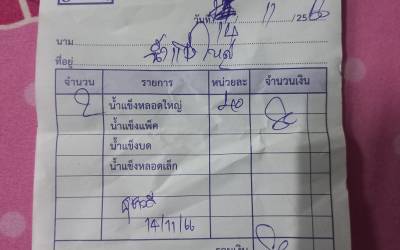 วันที่ 14 / 11 / 2566
นาม
ที่อยู่
จำนวน รายการ หน่วยละ จำนวนเงิน
2 น้ำแข็งหลอดใหญ่ 40 80
น้ำแข็งแพ็ค
น้ำแข็งบด
น้ำแข็งหลอดเล็ก
14/11/66
รวมเงิน 80